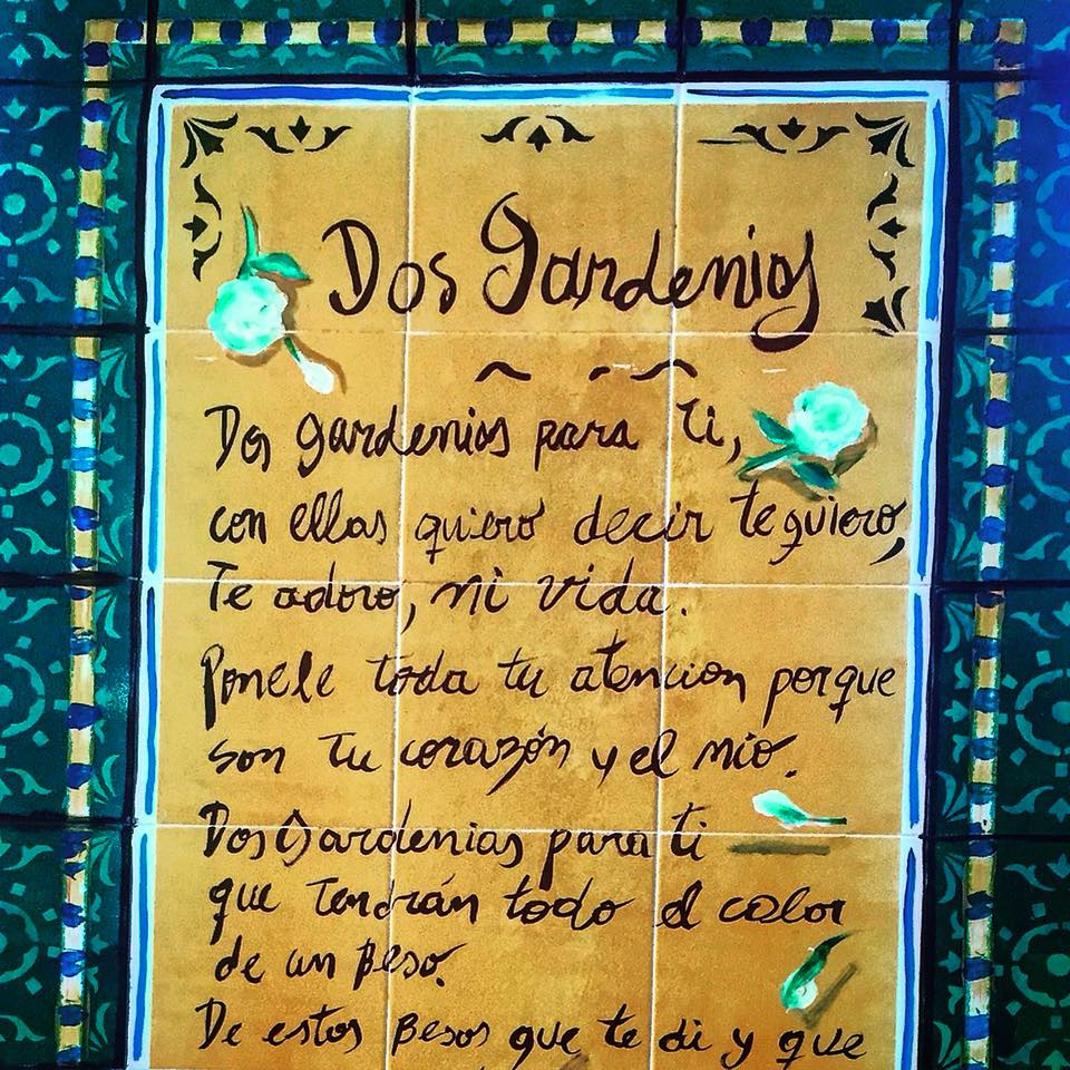 Dos Gardenias
Dos gardenias para ti,
con ellas quiero decir te quiero,
Te adoro, mi vida.
Ponele toda tu atencion porque
son tu corazón y el mio.
Dos Gardenias para ti
que tendrán todo el calor
de un Beso.
De estos Besos que te di y que